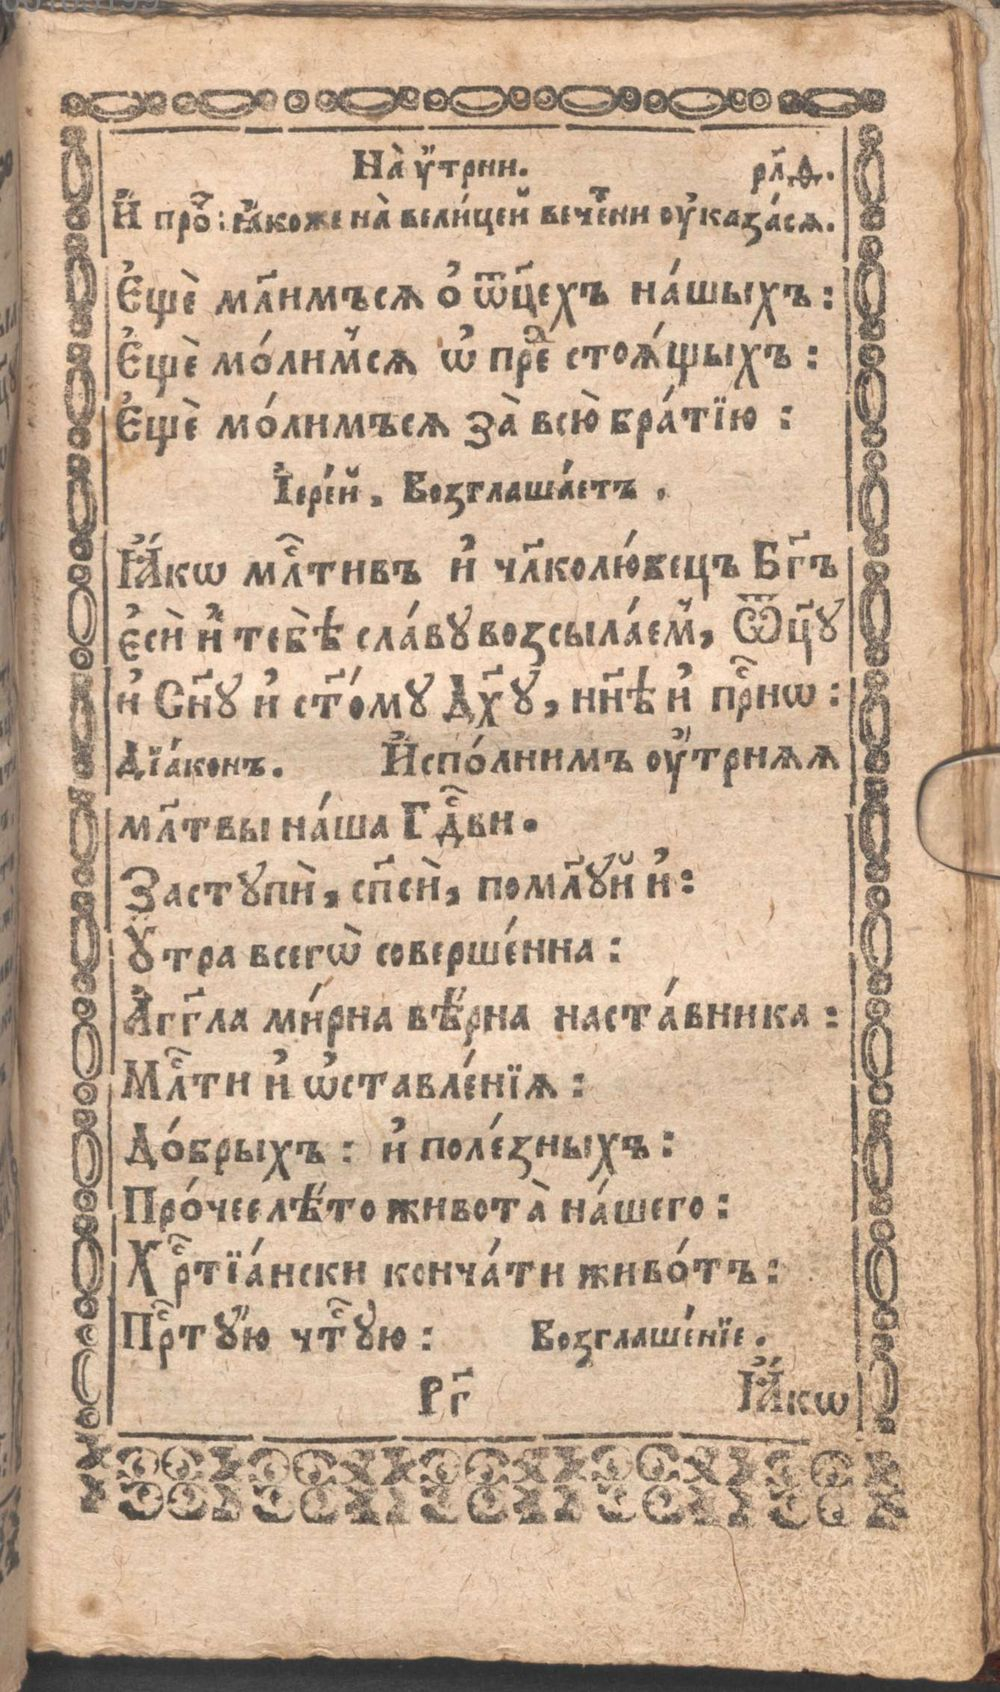 На̀ ᲂу҆́трни. рл҃ѳ.
И҆́ про́ч: ꙗ҆́коже на̀ вели́цей вече́рни ᲂу҆каза́сѧ.
Є҆щѐ мл҃имъсѧ о҆́ ѿц҃ехъ на́шыхъ:
Є҆щѐ мо́лимсѧ ѡ҆ пре́дстоѧ́щыхъ:
Є҆щѐ мо́лимъсѧ за̀ всю̀ бра́тїю:
І҆ере́й, Возглаша́етъ.
Ꙗ҆́кѡ мл҃тивъ и҆ чл҃колю́бецъ Бг҃ъ
є҆сѝ и҆́ тебѣ̀ сла́вꙋ возсыла́ем, Ѿц҃ꙋ
и҆ Сн҃ꙋ и҆ ст҃о́мꙋ Дх҃ꙋ, нн҃ѣ и҆ пр҇нѡ:
Дїа́конъ. И҆спо́лнимъ ᲂу҆́трнѧѧ
мл҃твы на́ша Гдⷭ҇ви.
Застꙋпѝ, сп҃сѝ, помл҃ꙋй и҆:
Ꙋ҆́тра всегѡ̀ соверше́нна:
А҆́гг҃ла ми́рна вѣ́рна наста́вника:
Млⷭ҇ти и҆ ѡ҆ставле́нїѧ:
До́брыхъ: и҆ поле́зныхъ:
Про́чее лѣ́то живота̀ на́шего:
Хрⷭ҇тїа́нски конча́ти живо́тъ:
Прⷭ҇тꙋ́ю чтⷭ҇ꙋю: Возглаше́нїе.
Рг҃ Ꙗ҆́кѡ